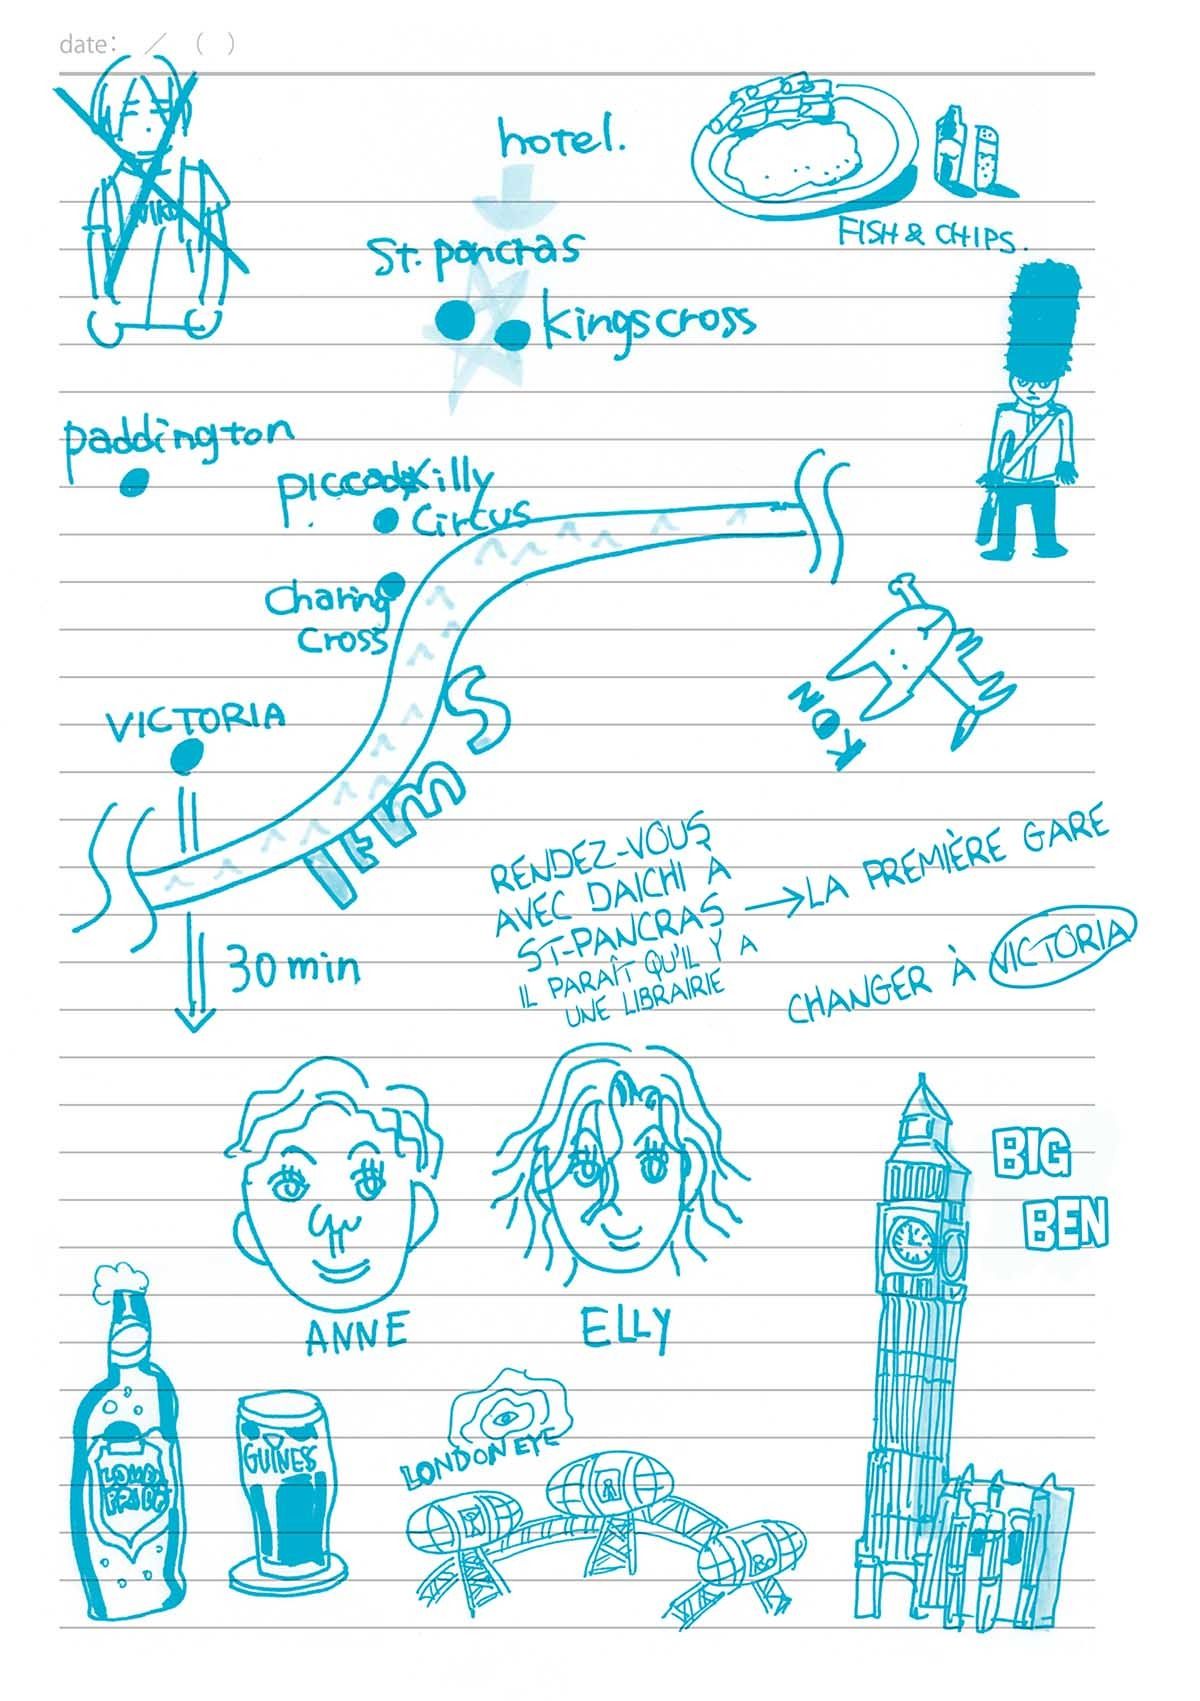 date: / ( )
hotel.
FISH & CHIPS.
St. pancras
kingscross
paddington
piccadilly
Circus
Charing
Cross
VICTORIA
TEMS
NOK
30 min
RENDEZ-VOUS
AVEC DAICHI À
ST-PANCRAS
IL PARAÎT QU'IL Y A
UNE LIBRAIRIE
→ LA PREMIÈRE GARE
CHANGER À VICTORIA
BIG
BEN
ANNE
ELLY
GUINESS
LONDON EYE